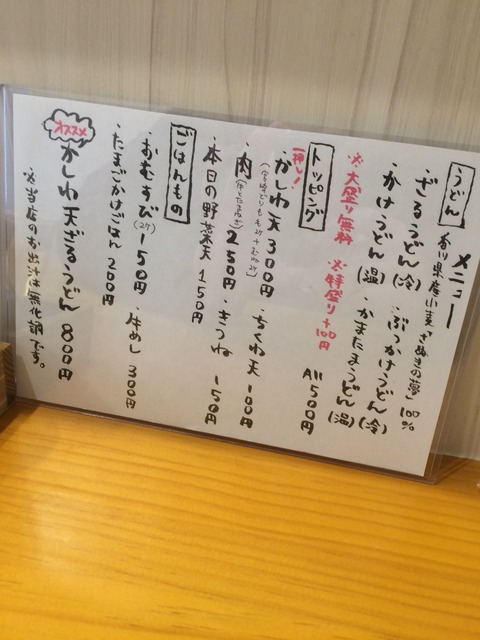 メニュー
うどん 香川県産小麦「さぬきの夢」100%
・ざるうどん(冷)・ぶっかけうどん(冷)
・かけうどん(温)・かまたまうどん(温)
All 500円
※大盛り無料 ※特盛り+100円
トッピング
一押し!
・かしわ天 300円 ・ちくわ天 100円
・肉 250円 ・きつね 150円
・本日の野菜天 150円
ごはんもの
・おむすび(2ケ) 150円 ・牛めし 300円
・たまごかけごはん 200円
オススメ
かしわ天ざるうどん 800円
※当店のお出汁は無化調です。